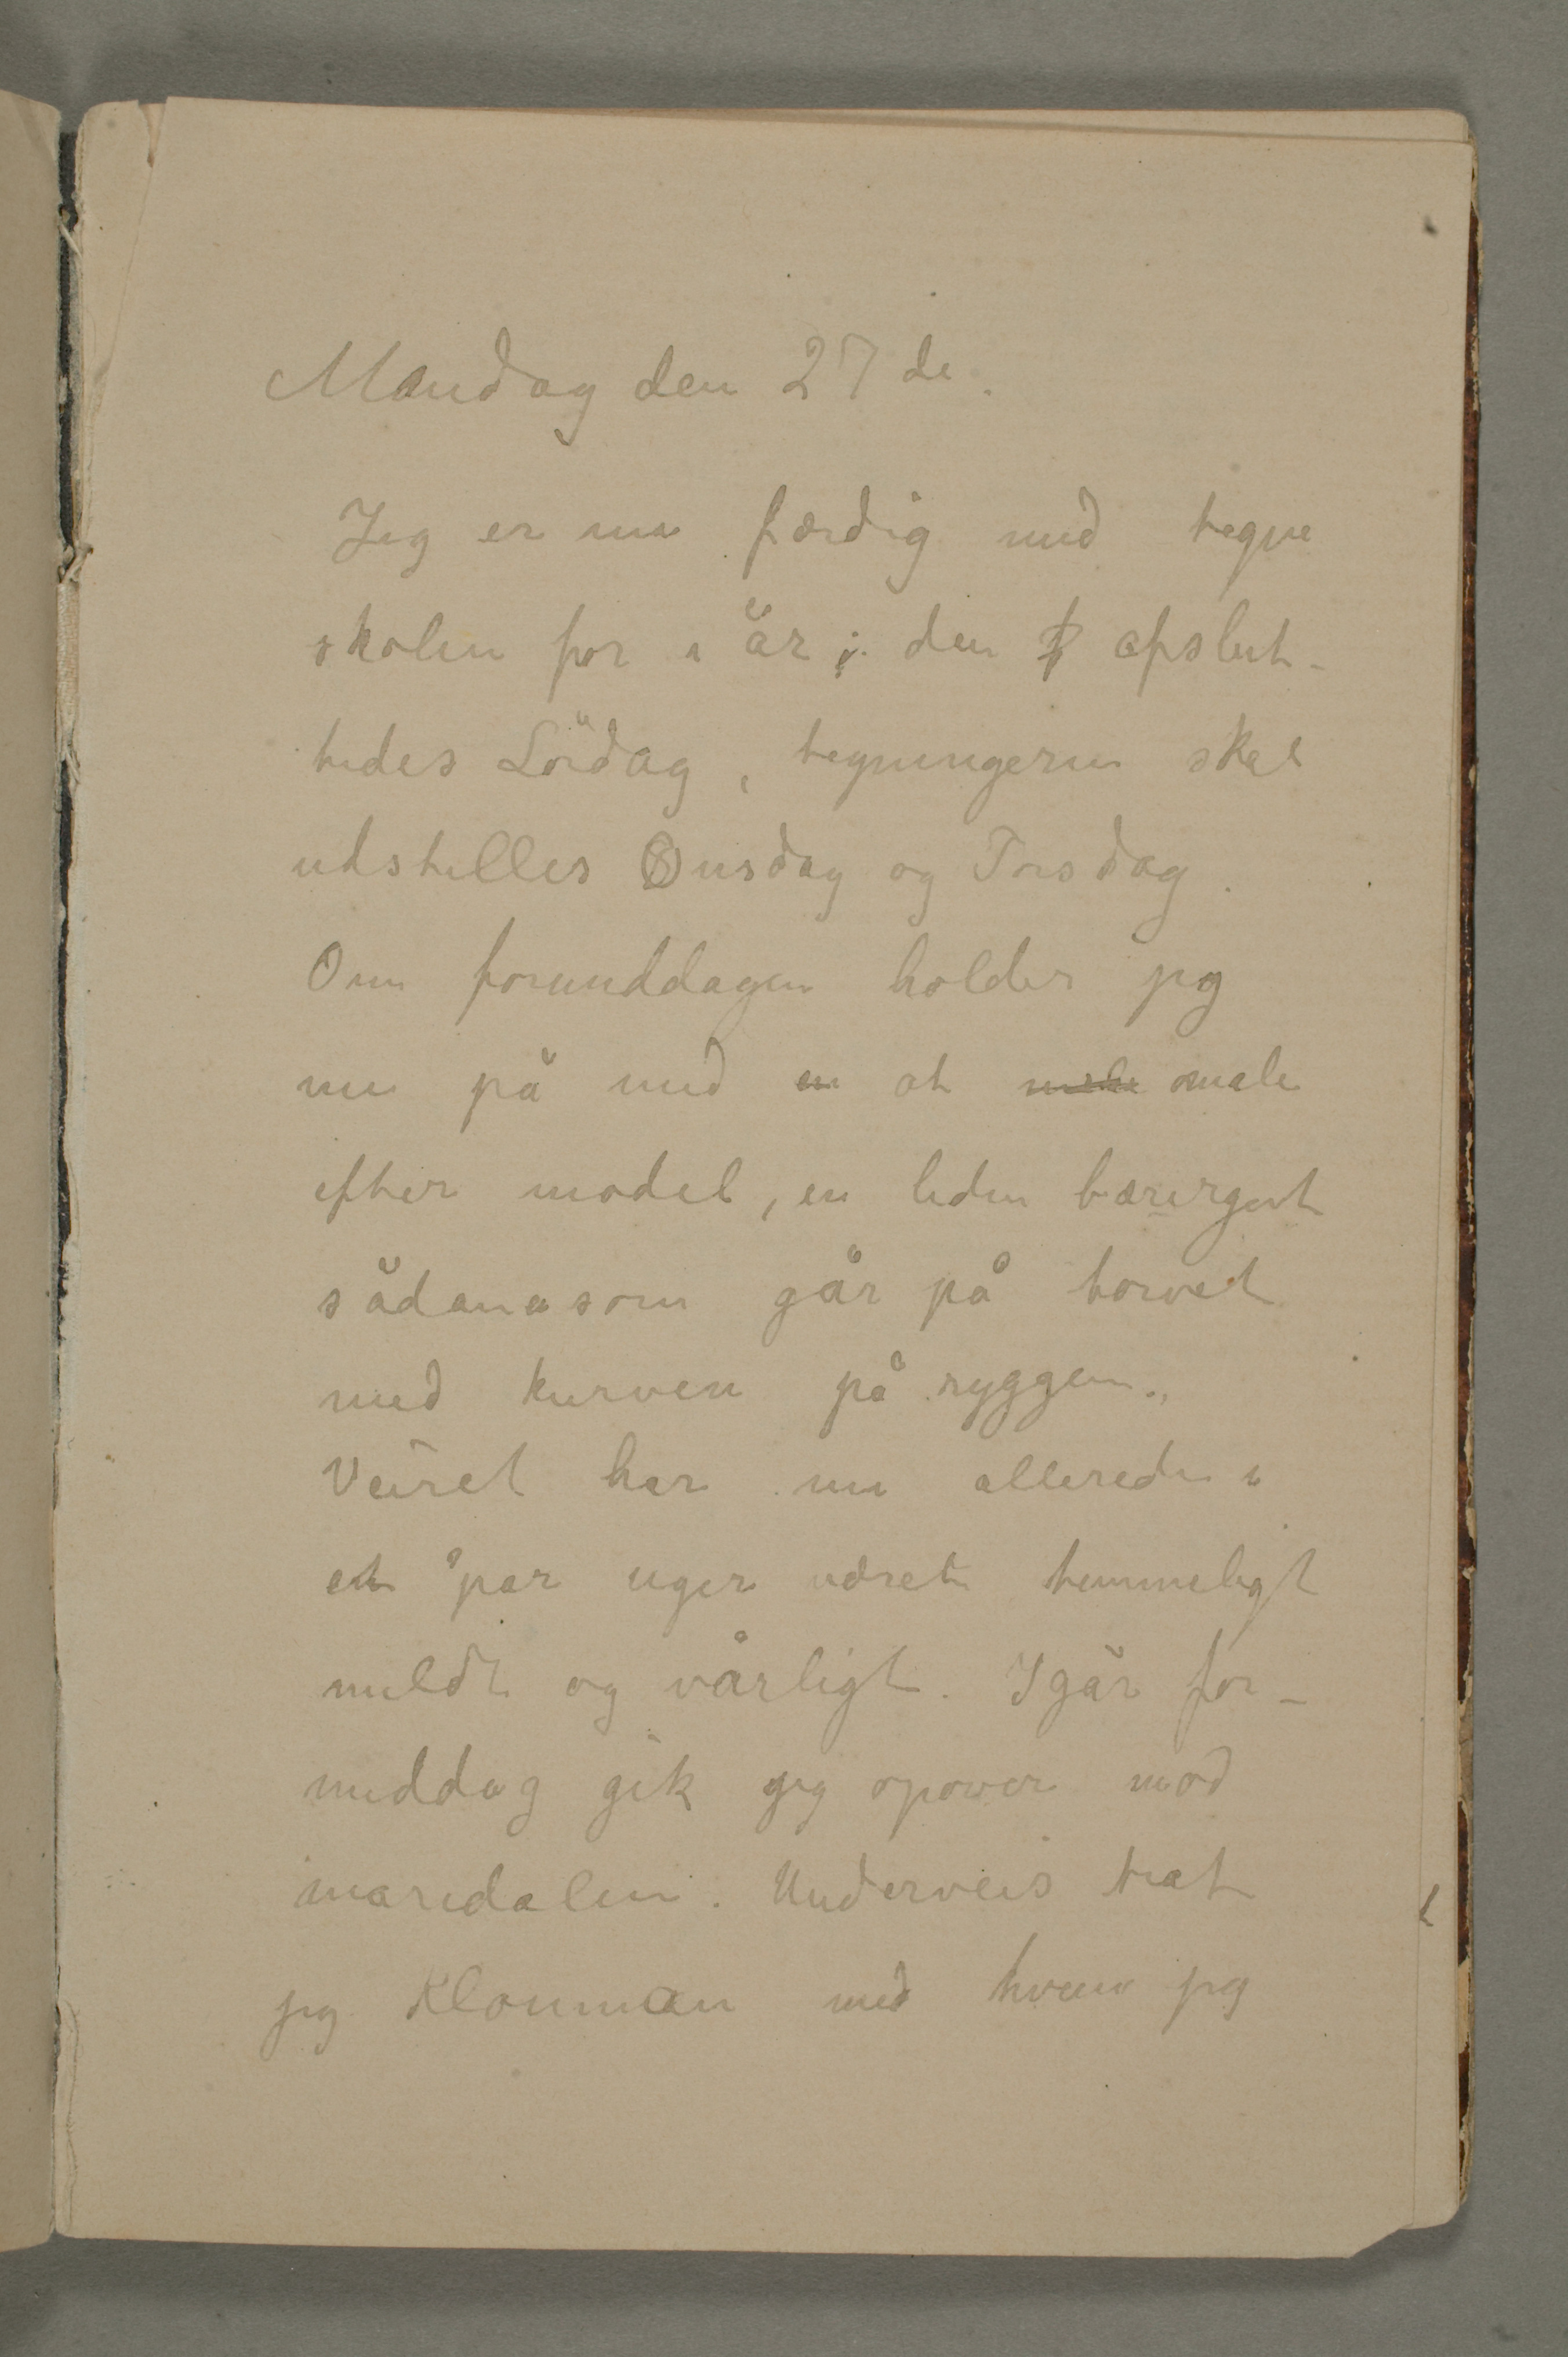 Mandag den 27de.
Jeg er nu færdig med tegne
skolen for i år; den afslut-
tedes Lördag, tegningerne skal
utstilles Onsdag og Torsdag.
Om formiddagen holder jeg
nu på med en at male male
efter model, en liden bærergut
sådana som går på torvet
med kurven på ryggen.
Veiret har nu allerede i
et par uger været temmeligt
mildt og vårligt. Igår for-
middag gik jeg opover mod
maridalen. Underveis traf
jeg Klouman med hvem jeg